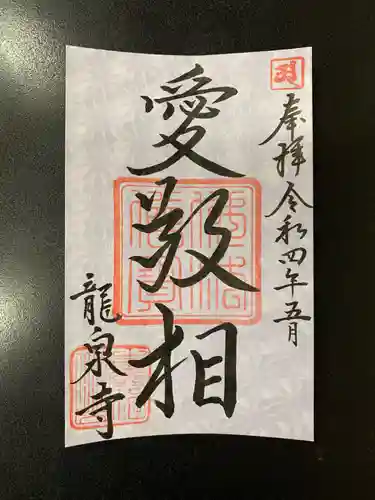 奉拝 令和四年五月
愛敬相
龍泉寺